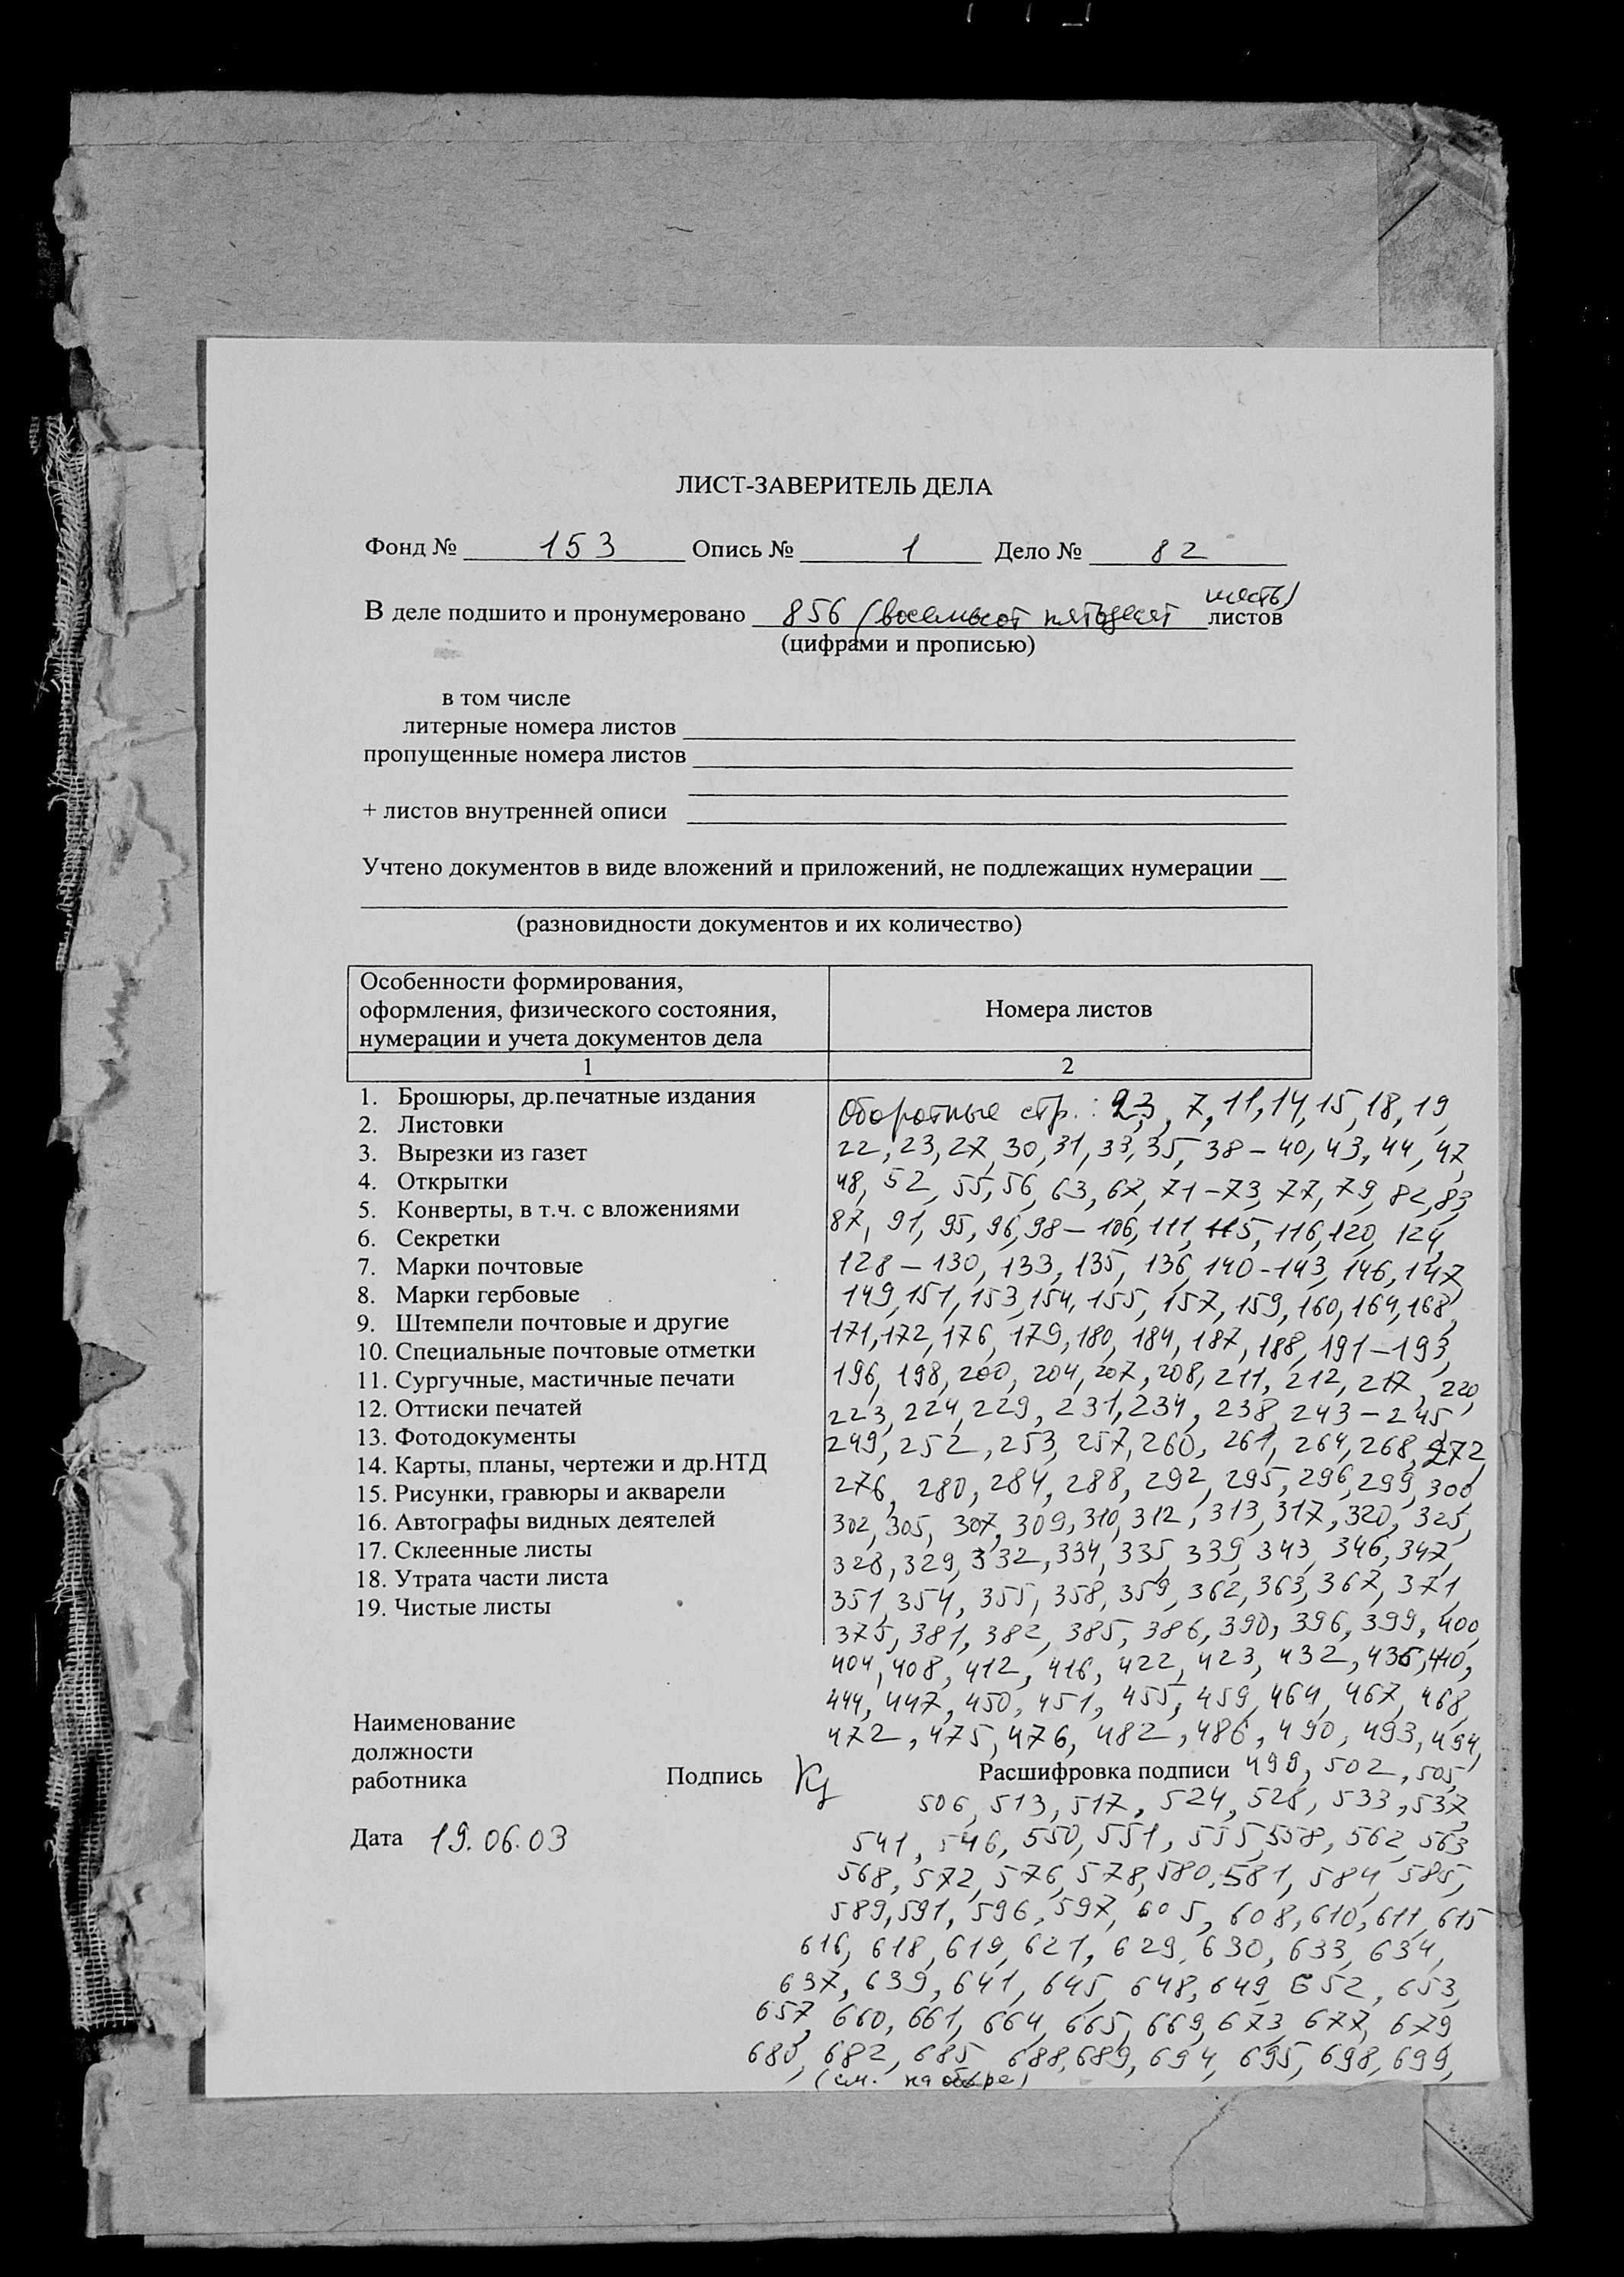 ЛИСТ-ЗАВЕРИТЕЛЬ ДЕЛА
Фонд № 153 Опись № 1 Дело № 82
шесть)
В деле подшито и пронумеровано 856 (восемьсот пятьдесят листов
(цифрами и прописью)
в том числе
литерные номера листов
пропущенные номера листов
+ листов внутренней описи
Учтено документов в виде вложений и приложений, не подлежащих нумерации
(разновидности документов и их количество)
Особенности формирования,
оформления, физического состояния,
нумерации и учета документов дела
Номера листов
1
2
1. Брошюры, др.печатные издания
2. Листовки
3. Вырезки из газет
4. Открытки
5. Конверты, в т.ч. с вложениями
6. Секретки
7. Марки почтовые
8. Марки гербовые
9. Штемпели почтовые и другие
10. Специальные почтовые отметки
11. Сургучные, мастичные печати
12. Оттиски печатей
13. Фотодокументы
14. Карты, планы, чертежи и др.НТД
15. Рисунки, гравюры и акварели
16. Автографы видных деятелей
17. Склеенные листы
18. Утрата части листа
19. Чистые листы
Оборотные стр.: 2,3, 7, 11, 14, 15, 18, 19,
22, 23, 27, 30, 31, 33, 35, 38 – 40, 43, 44, 47,
48, 52, 55, 56, 63, 67, 71 – 73, 77, 79, 82, 83,
87, 91, 95, 96, 98 – 106, 111, 115, 116, 120, 124,
128 – 130, 133, 135, 136, 140 - 143, 146, 147,
149, 151, 153, 154, 155, 157, 159, 160, 164, 168,
171, 172, 176, 179, 180, 184, 187, 188, 191 – 193,
196, 198, 200, 204, 207, 208, 211, 212, 217, 220,
223, 224, 229, 231, 234, 238, 243 – 245,
249, 252, 253, 257, 260, 261, 264, 268, 272,
276, 280, 284, 288, 292, 295, 296, 299, 300,
302, 305, 307, 309, 310, 312, 313, 317, 320, 325,
328, 329, 332, 334, 335, 339, 343, 346, 347,
351, 354, 355, 358, 359, 362, 363, 367, 371,
375, 381, 382, 385, 386, 390, 396, 399, 400,
404, 408, 412, 416, 422, 423, 432, 436, 440,
444, 447, 450, 451, 455, 459, 464, 467, 468,
472, 475, 476, 482, 486, 490, 493, 494,
Наименование
должности
работника Подпись Расшифровка подписи 499, 502, 505,
506, 513, 517, 524, 528, 533, 537,
Дата 19.06.03
541, 546, 550, 551, 555, 558, 562, 563
568, 572, 576, 578, 580, 581, 584, 585,
589, 591, 596, 597, 605, 608, 610, 611, 615
616, 618, 619, 621, 629, 630, 633, 634,
637, 639, 641, 645, 648, 649, 652, 653,
657, 660, 661, 664, 665, 669, 673, 677, 679,
680, 682, 685, 688, 689, 694, 695, 698, 699,
(см. на обороте)